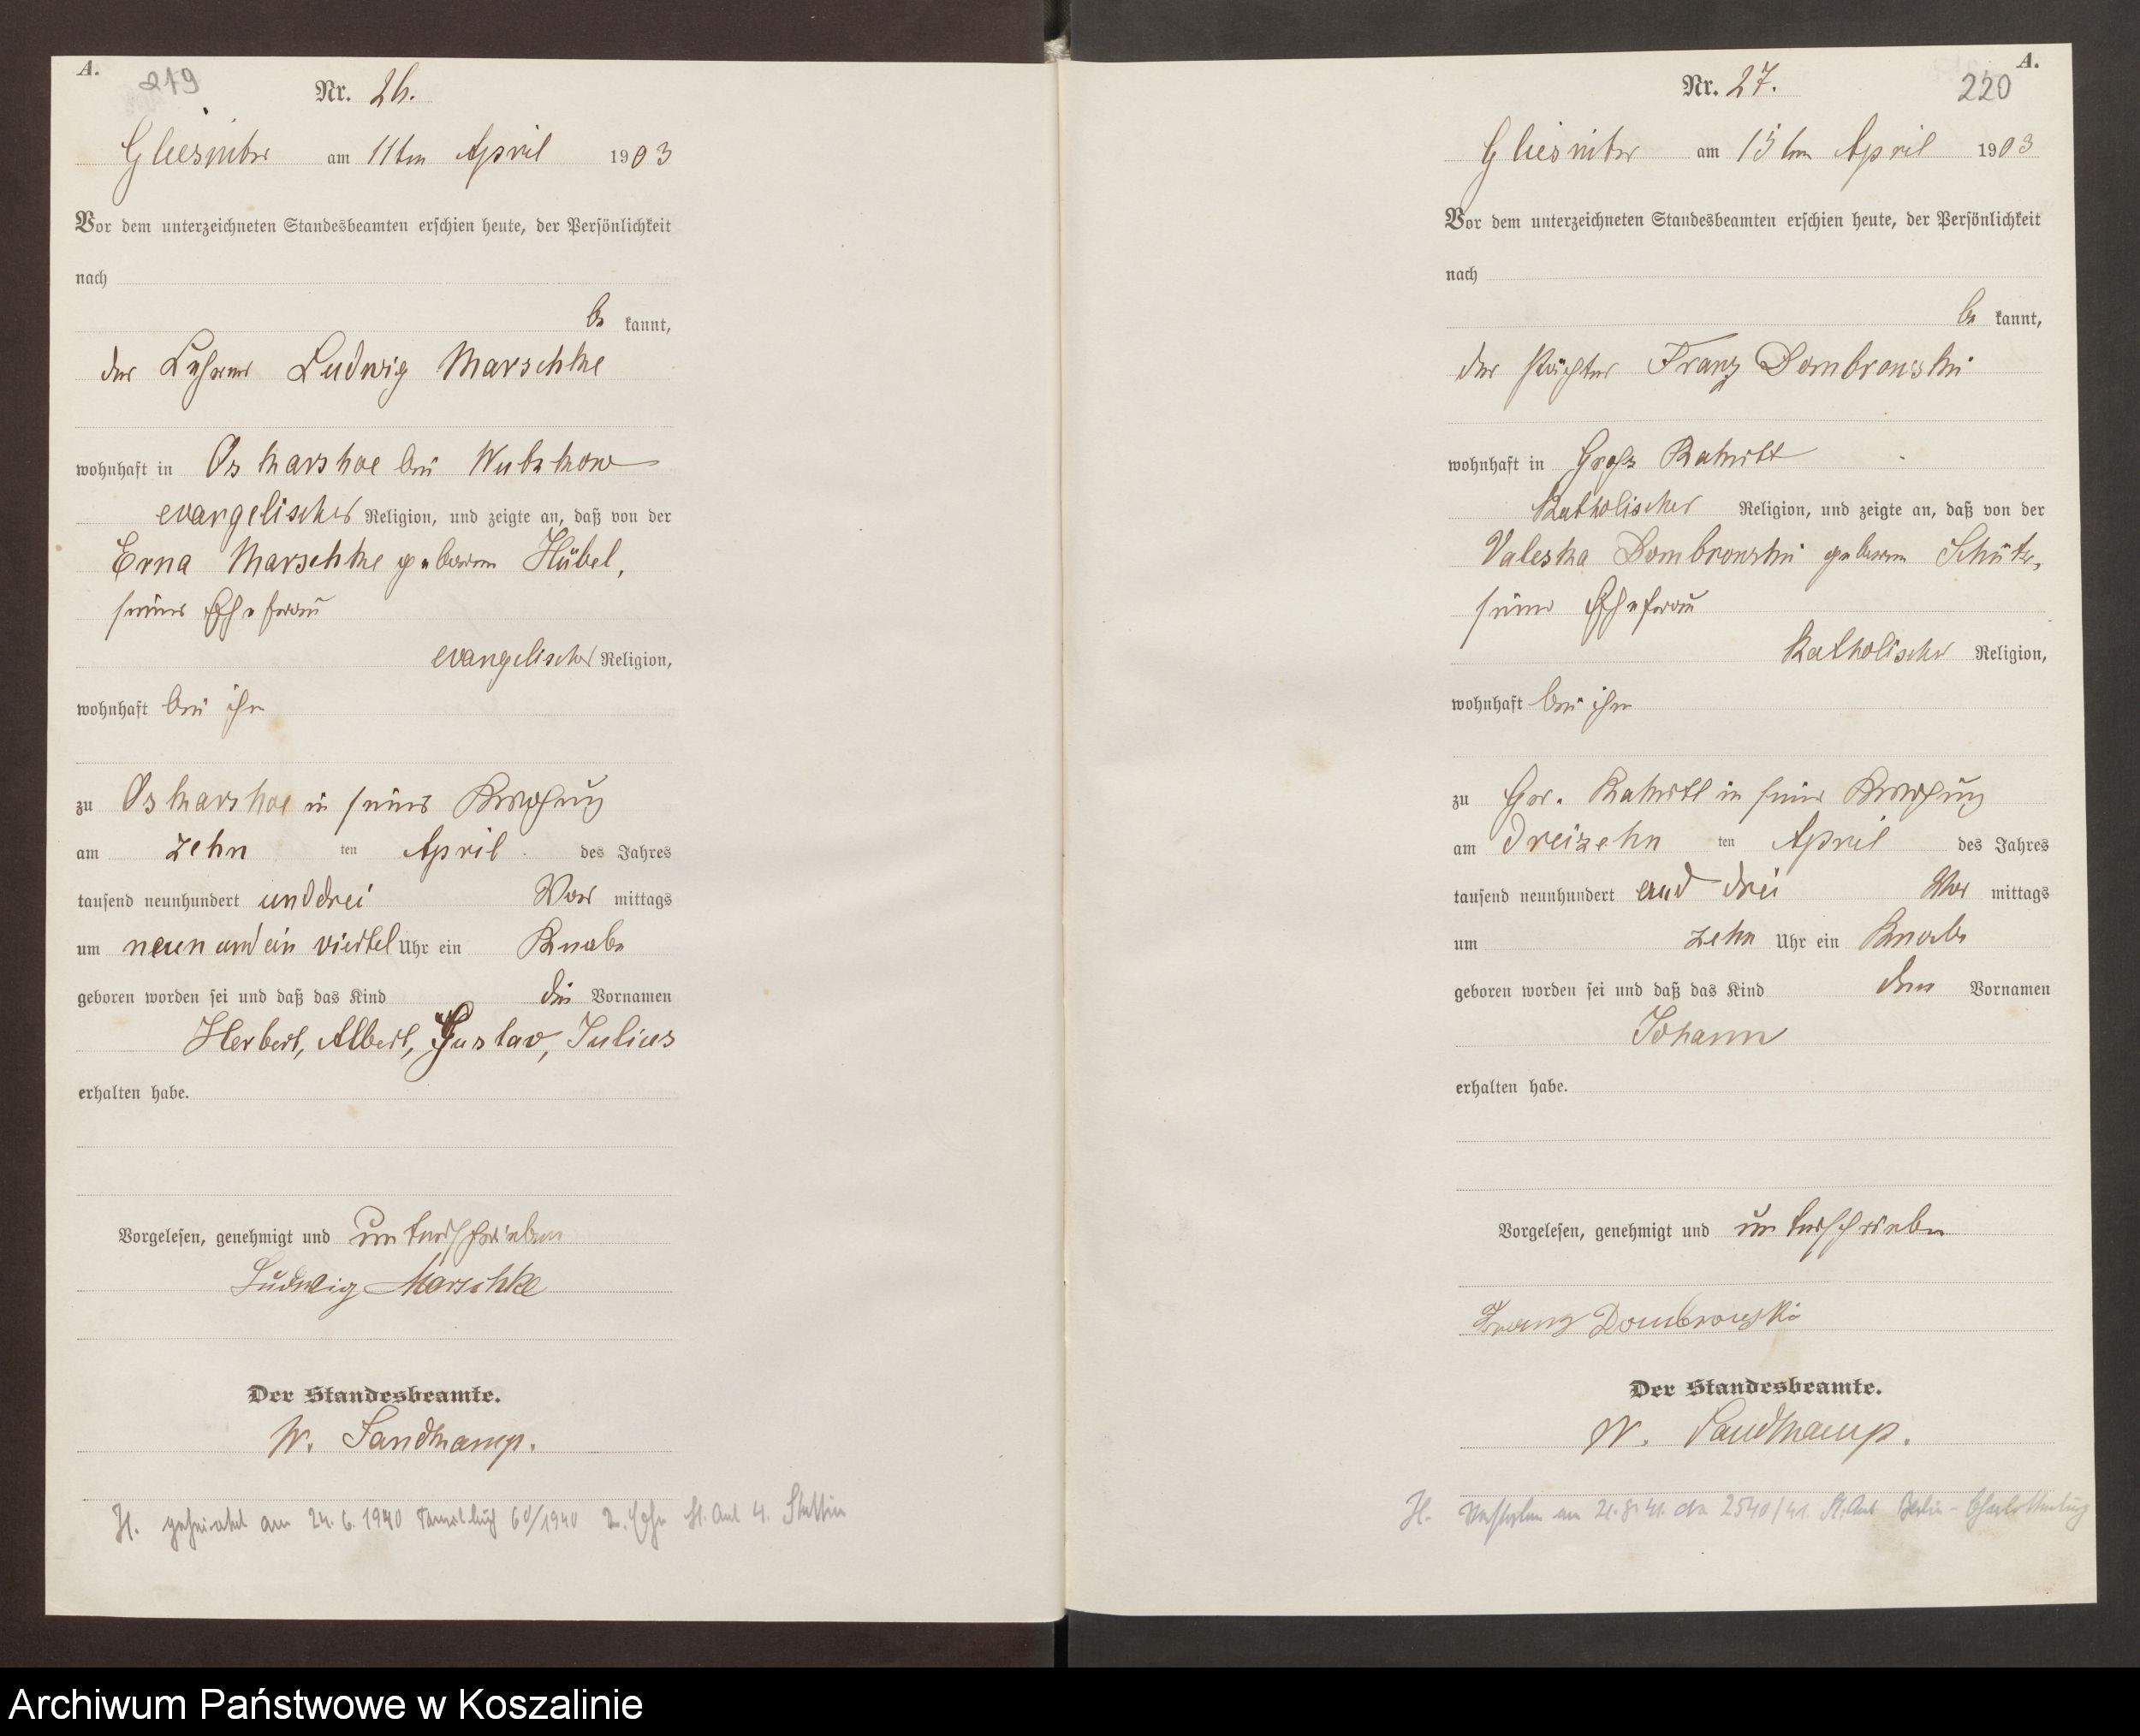 A.
219
Nr. 26.
Gliesnitz am 11ten April 1903
Vor dem unterzeichneten Standesbeamten erschien heute, der Persönlichkeit
nach
be kannt,
der Lehrer Ludwig Marschke
wohnhaft in Oskarshoe bei Wutzkow
evangelischer Religion, und zeigte an, daß von der
Erna Marschke geborenen Hübel,
seiner Ehefrau
evangelischer Religion,
wohnhaft bei ihm
zu Oskarshoe in seiner Behausung
am zehn ten April des Jahres
tausend neunhundert und drei Vor mittags
um neun und ein viertel Uhr ein Knabe
geboren worden sei und daß das Kind die Vornamen
Herbert, Albert, Gustav, Julius
erhalten habe.
Vorgelesen, genehmigt und unterschrieben
Ludwig Marschke
Der Standesbeamte.
W. Sandkamp.
H. geheiratet am 24. 6. 1940 60/1940 St. Amt 4. Stettin
A.
220
Nr. 27.
Gliesnitz am 15ten April 1903
Vor dem unterzeichneten Standesbeamten erschien heute, der Persönlichkeit
nach
be kannt,
der Pächter Franz Dombrowski
wohnhaft in Groß Rakitt
Katholischer Religion, und zeigte an, daß von der
Valeska Dombrowski geborenen Schütz,
seiner Ehefrau
Katholischer Religion,
wohnhaft bei ihm
zu Gr. Rakitt in seiner Behausung
am dreizehn ten April des Jahres
tausend neunhundert und drei Vor mittags
um zehn Uhr ein Knabe
geboren worden sei und daß das Kind den Vornamen
Johann
erhalten habe.
Vorgelesen, genehmigt und unterschrieben
Franz Dombrowski
Der Standesbeamte.
W. Sandkamp.
H. Verstorben am 21. 8. 41. 2540/41. St. Amt Berlin-Charlottenburg
Archiwum Państwowe w Koszalinie